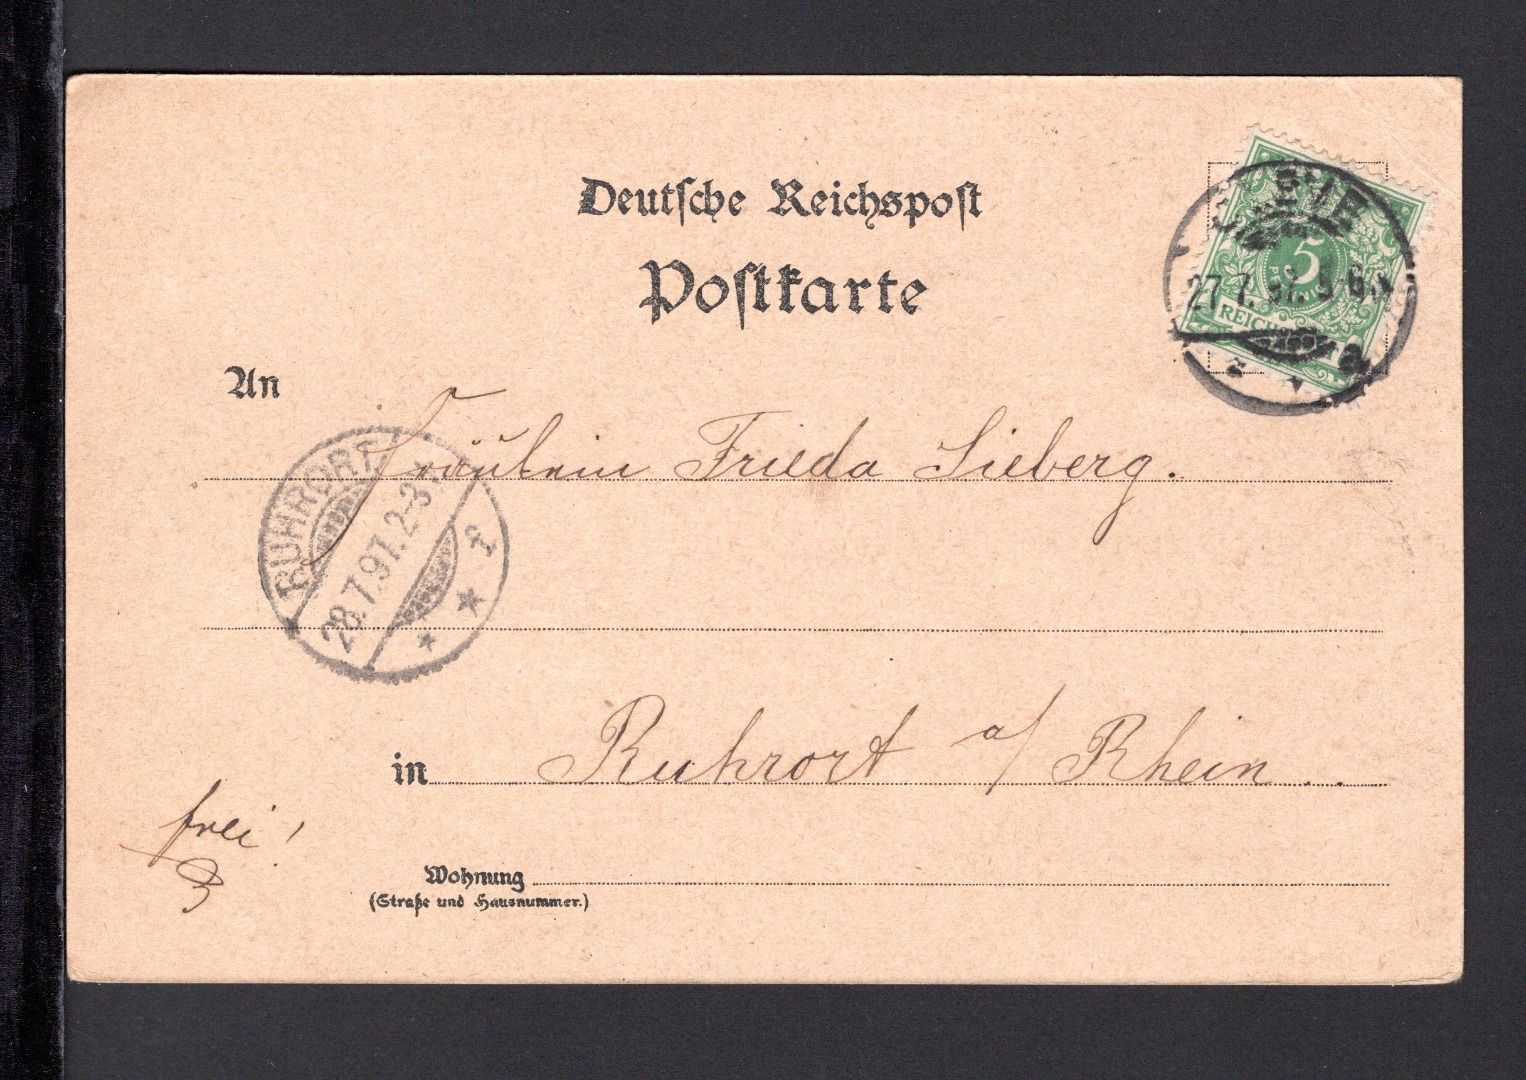 Deutsche Reichspost
Postkarte
5
REICHSPOST
27.7.97.
An
Fräulein Frieda Sieberg.
RUHRORT
28.7.97. 2-3
f
in Ruhrort a/ Rhein
frei!
3
Wohnung
(Straße und Hausnummer.)